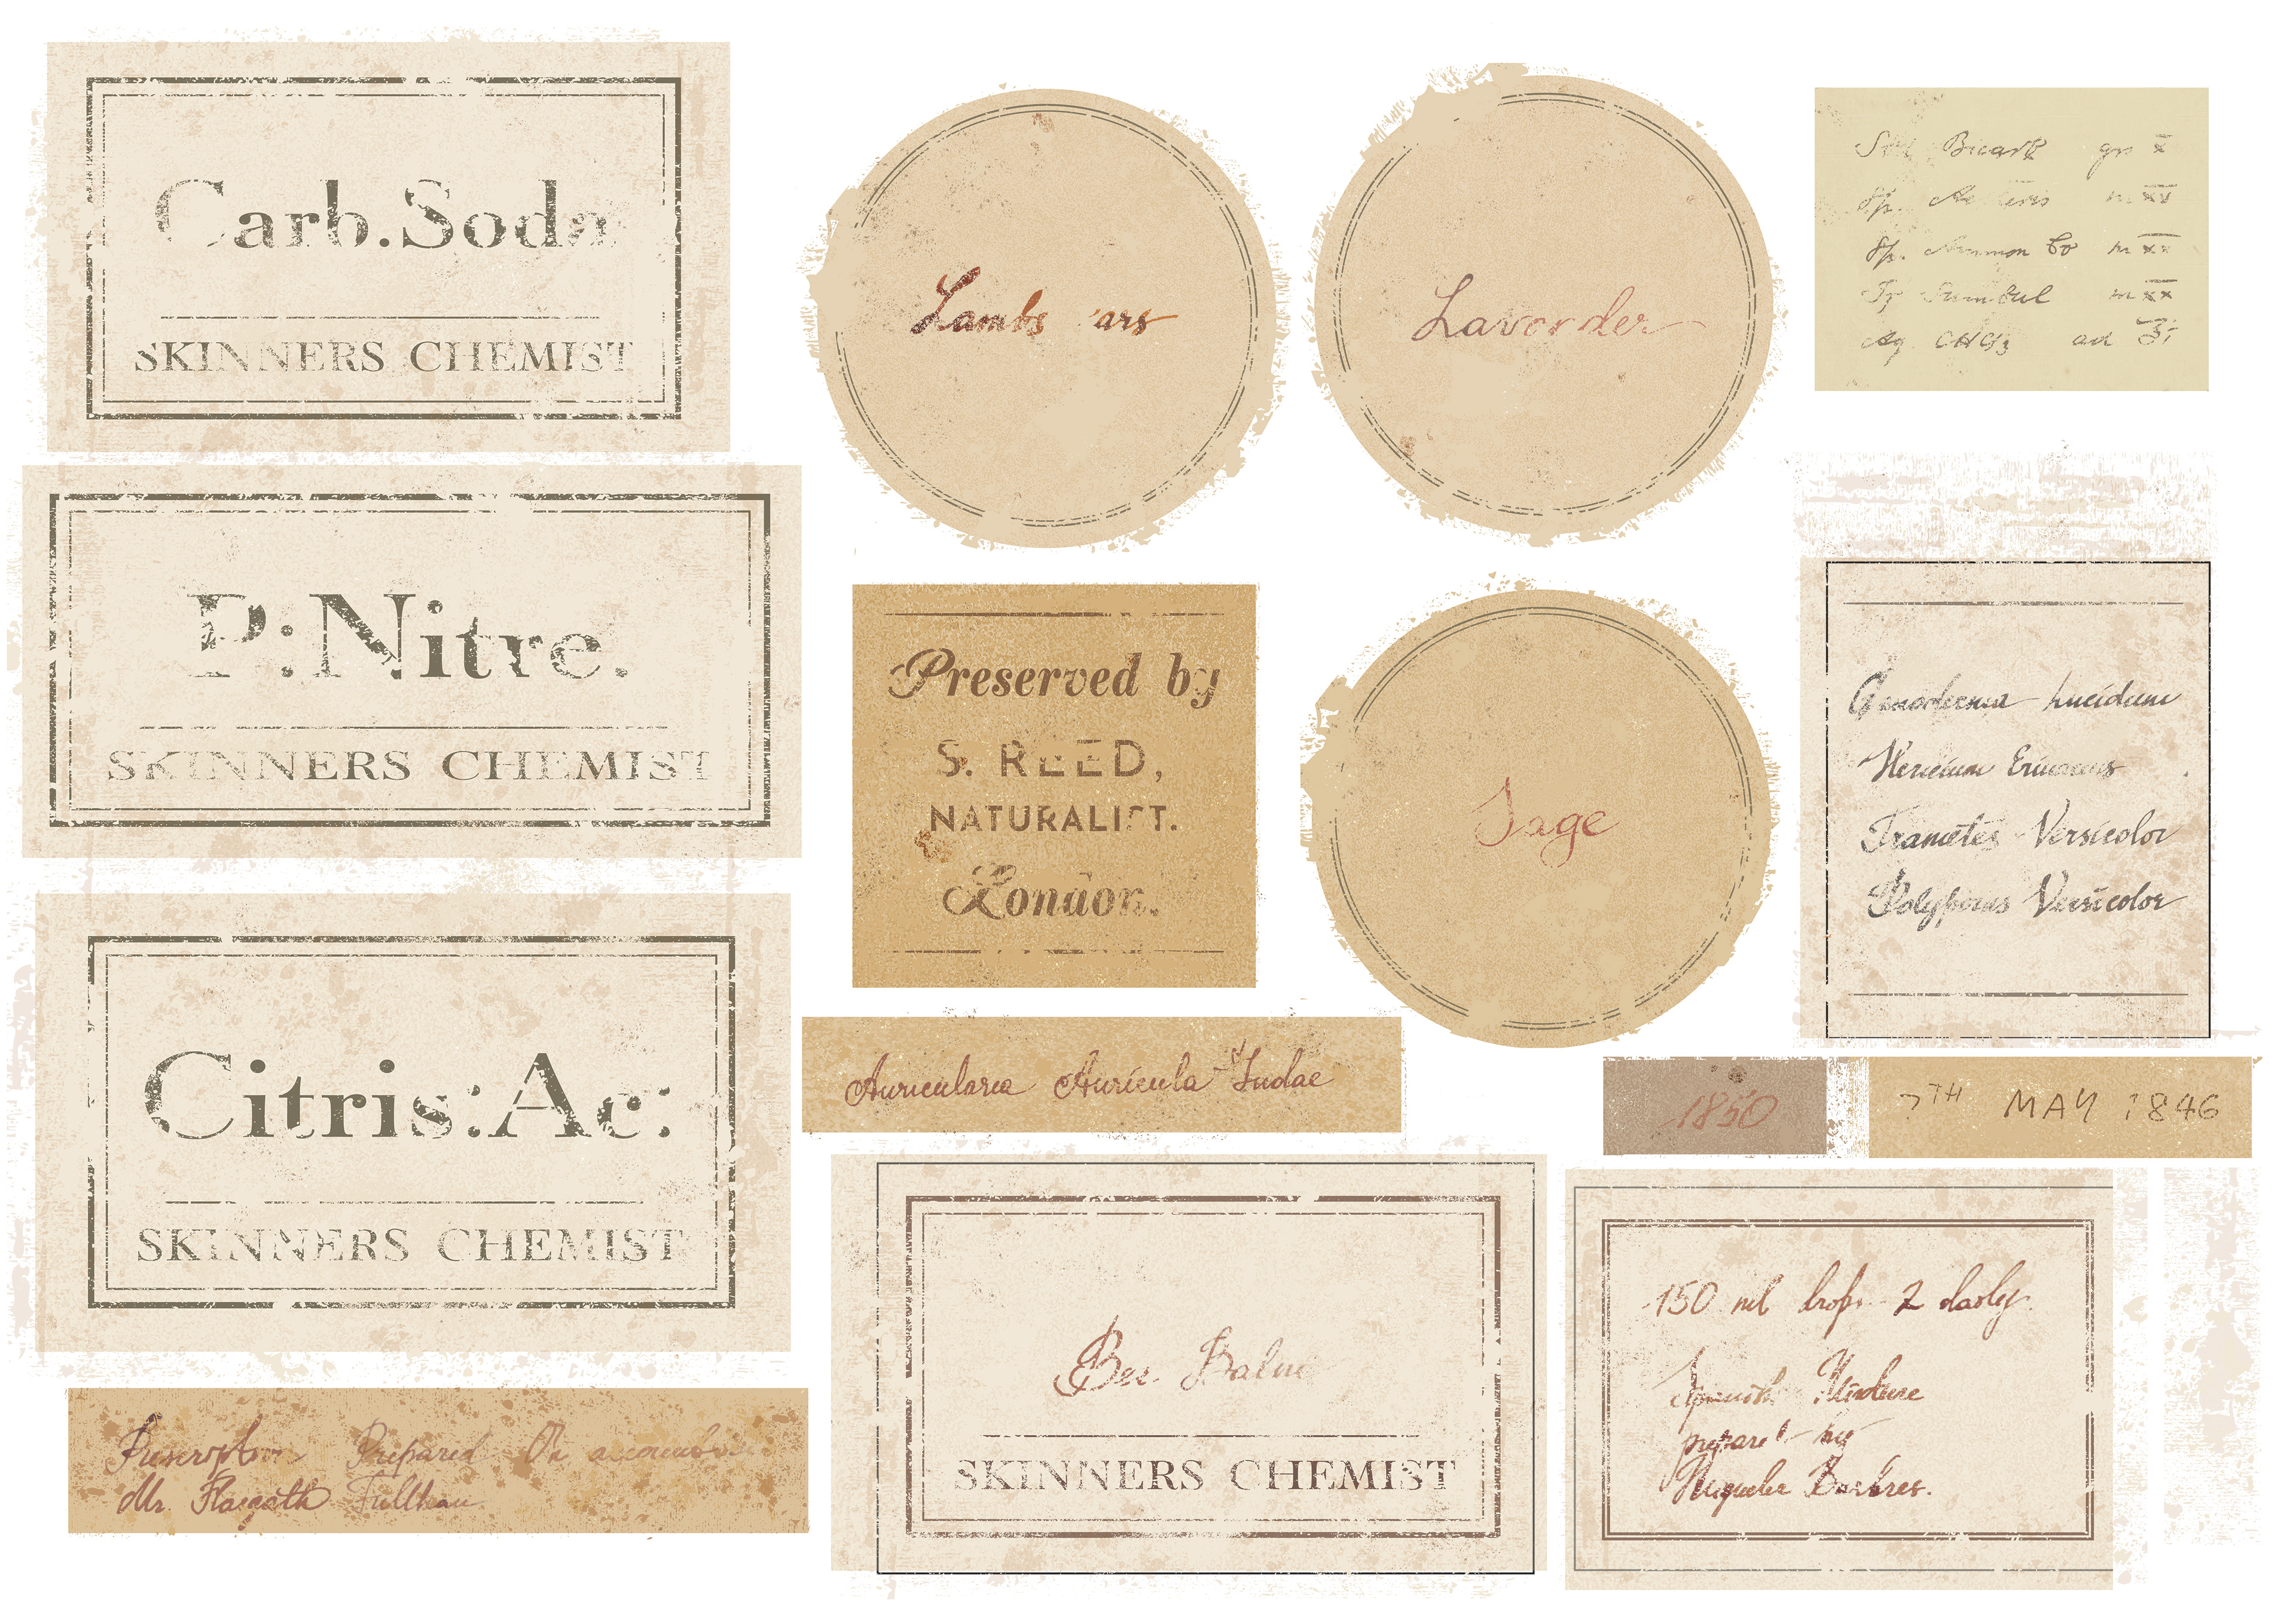 Carb.Soda
SKINNERS CHEMIST
P:Nitre.
SKINNERS CHEMIST
Citris:Ac:
SKINNERS CHEMIST
Prescription Prepared On
Mr.
Lambs ars
Lavender
Preserved by
S. REED,
NATURALIST.
London.
Sage
Auricularia Auricula Judae
Bee Balm
SKINNERS CHEMIST
Bicarb grs x
Sp. m xv
Sp. Ammon Co m xx
Tr Sumbul m xx
Aq CHCl3 ad ℥i
Ganoderma Lucidum
Hericium Erinaceus
Trametes Versicolor
Polyporus Versicolor
1850
7TH MAY 1846
150 ml 2 daily.
Spanish Mixture
prepared by